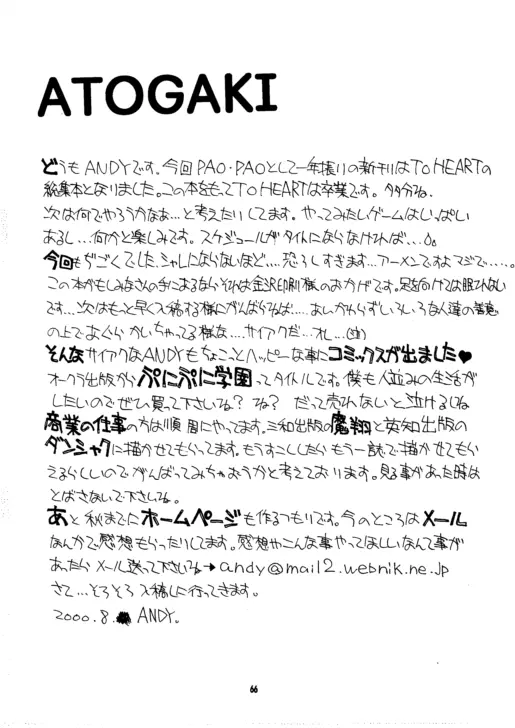 ATOGAKI
どうもANDYです。今回PAO・PAOとして一年振りの新刊はTO HEARTの
総集本となりました。この本をもってTO HEARTは卒業です。多分ね、
次は何でやろうかなぁ…と考えたりしてます。やってみたいゲームはいっぱい
あるし…何かと楽しみです。スケジュールがタイトにならなければ…
今回もぢごくでした。シャレにならないほど…恐ろしすぎます…アーメンですよマジで……。
この本がもしみなさんの手にあるならそれは金沢印刷様のおかげです。足を向けては眠れない
です…次はもっと早く入稿する様にがんばらねば……あいかわらずいろいろな人達の善意
の上であぐらかいちゃってる様な……サイアクだ…オレ…(泣)
そんなサイアクなANDYもちょこっとハッピーな事にコミックスが出ました♥
オークラ出版からぷにぷに学園ってタイトルです。僕も人並みの生活が
したいのでぜひ買って下さいね？ね？だって売れないと泣けるしね
商業の仕事の方は順調にやってます。三和出版の魔翔と英知出版の
ダンシャクに描かせてもらってます。もうすこししたらもう一誌で描かせてもら
えるらしいのでがんばってみちゃおうかと考えております。見る事があった時は
とばさないで下さいね。
あと秋までにホームページも作るつもりです。今のところはメール
なんかで感想もらったりしてます。感想やこんな事やってほしいなんて事が
あったらメール送って下さいね→andy@mail2.webnik.ne.jp
さて…そろそろ入稿しに行ってきます。
2000.8. ANDY.
66